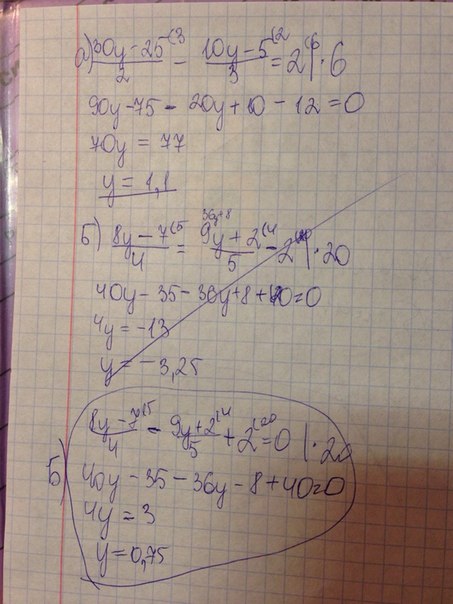 а) (30y-25)/2 (3 - (10y-5)/3 (2 = 2 (6 |·6
90y-75 - 20y+10 - 12=0
70y = 77
y = 1,1
Б) (8y-7)/4 (5 = (9y+2)/5 (4 - 2 |·20
36y+8
40y-35-36y+8+40=0
4y = -13
y = -3,25
Б) (8y-7)/4 (5 - (9y+2)/5 (4 + 2 (20 = 0 |·20
40y-35-36y-8+40=0
4y = 3
y=0,75